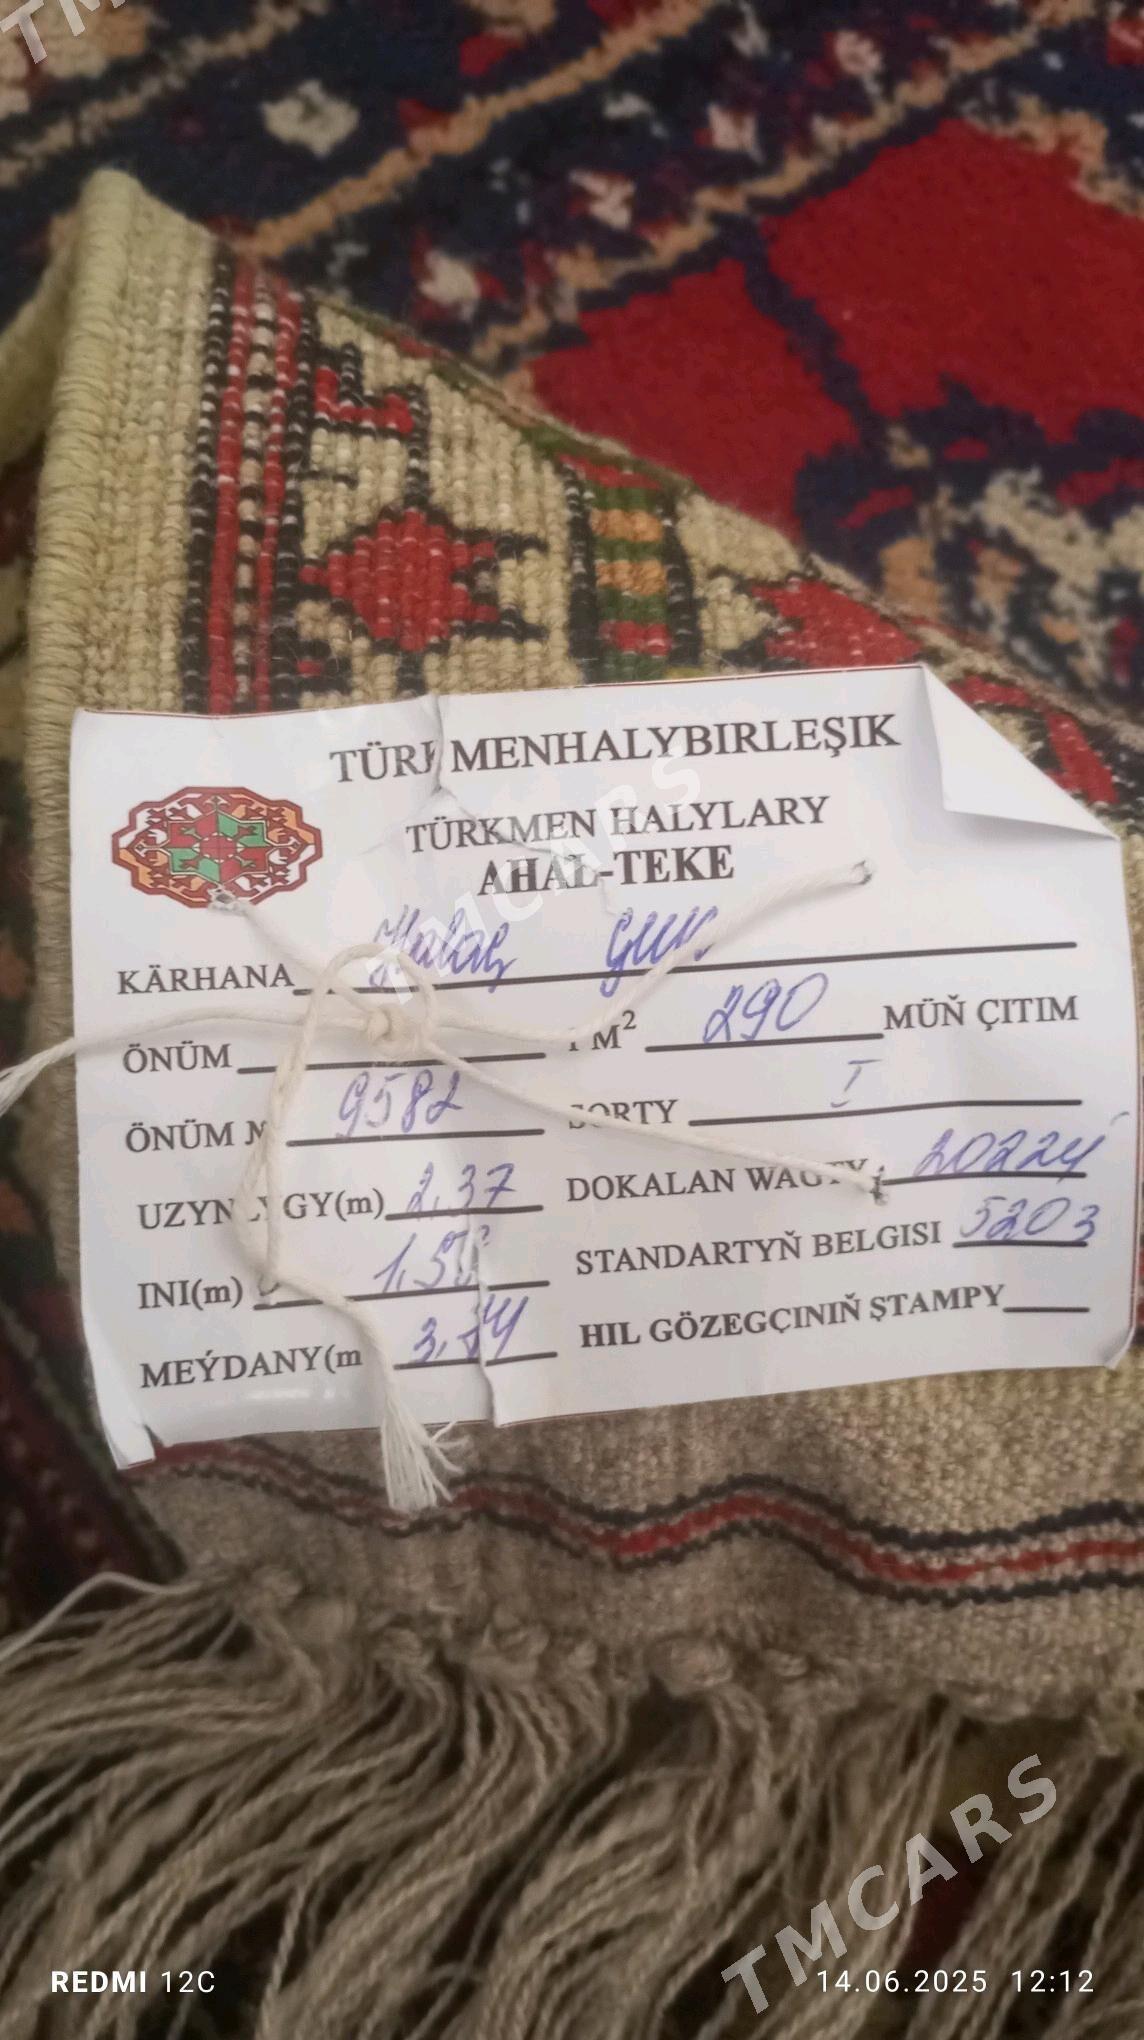 TÜRKMENHALYBIRLEŞIK
TÜRKMEN HALYLARY
AHAL-TEKE
KÄRHANA
ÖNÜM M² 290 MÜŇ ÇITIM
ÖNÜM № 9582 SORTY I
UZYNLYGY(m) 2,37 DOKALAN WAGTY 2022ý
INI(m) STANDARTYŇ BELGISI 5203
MEÝDANY(m HIL GÖZEGÇINIŇ ŞTAMPY
TMCARS
TMCARS
REDMI 12C 14.06.2025 12:12